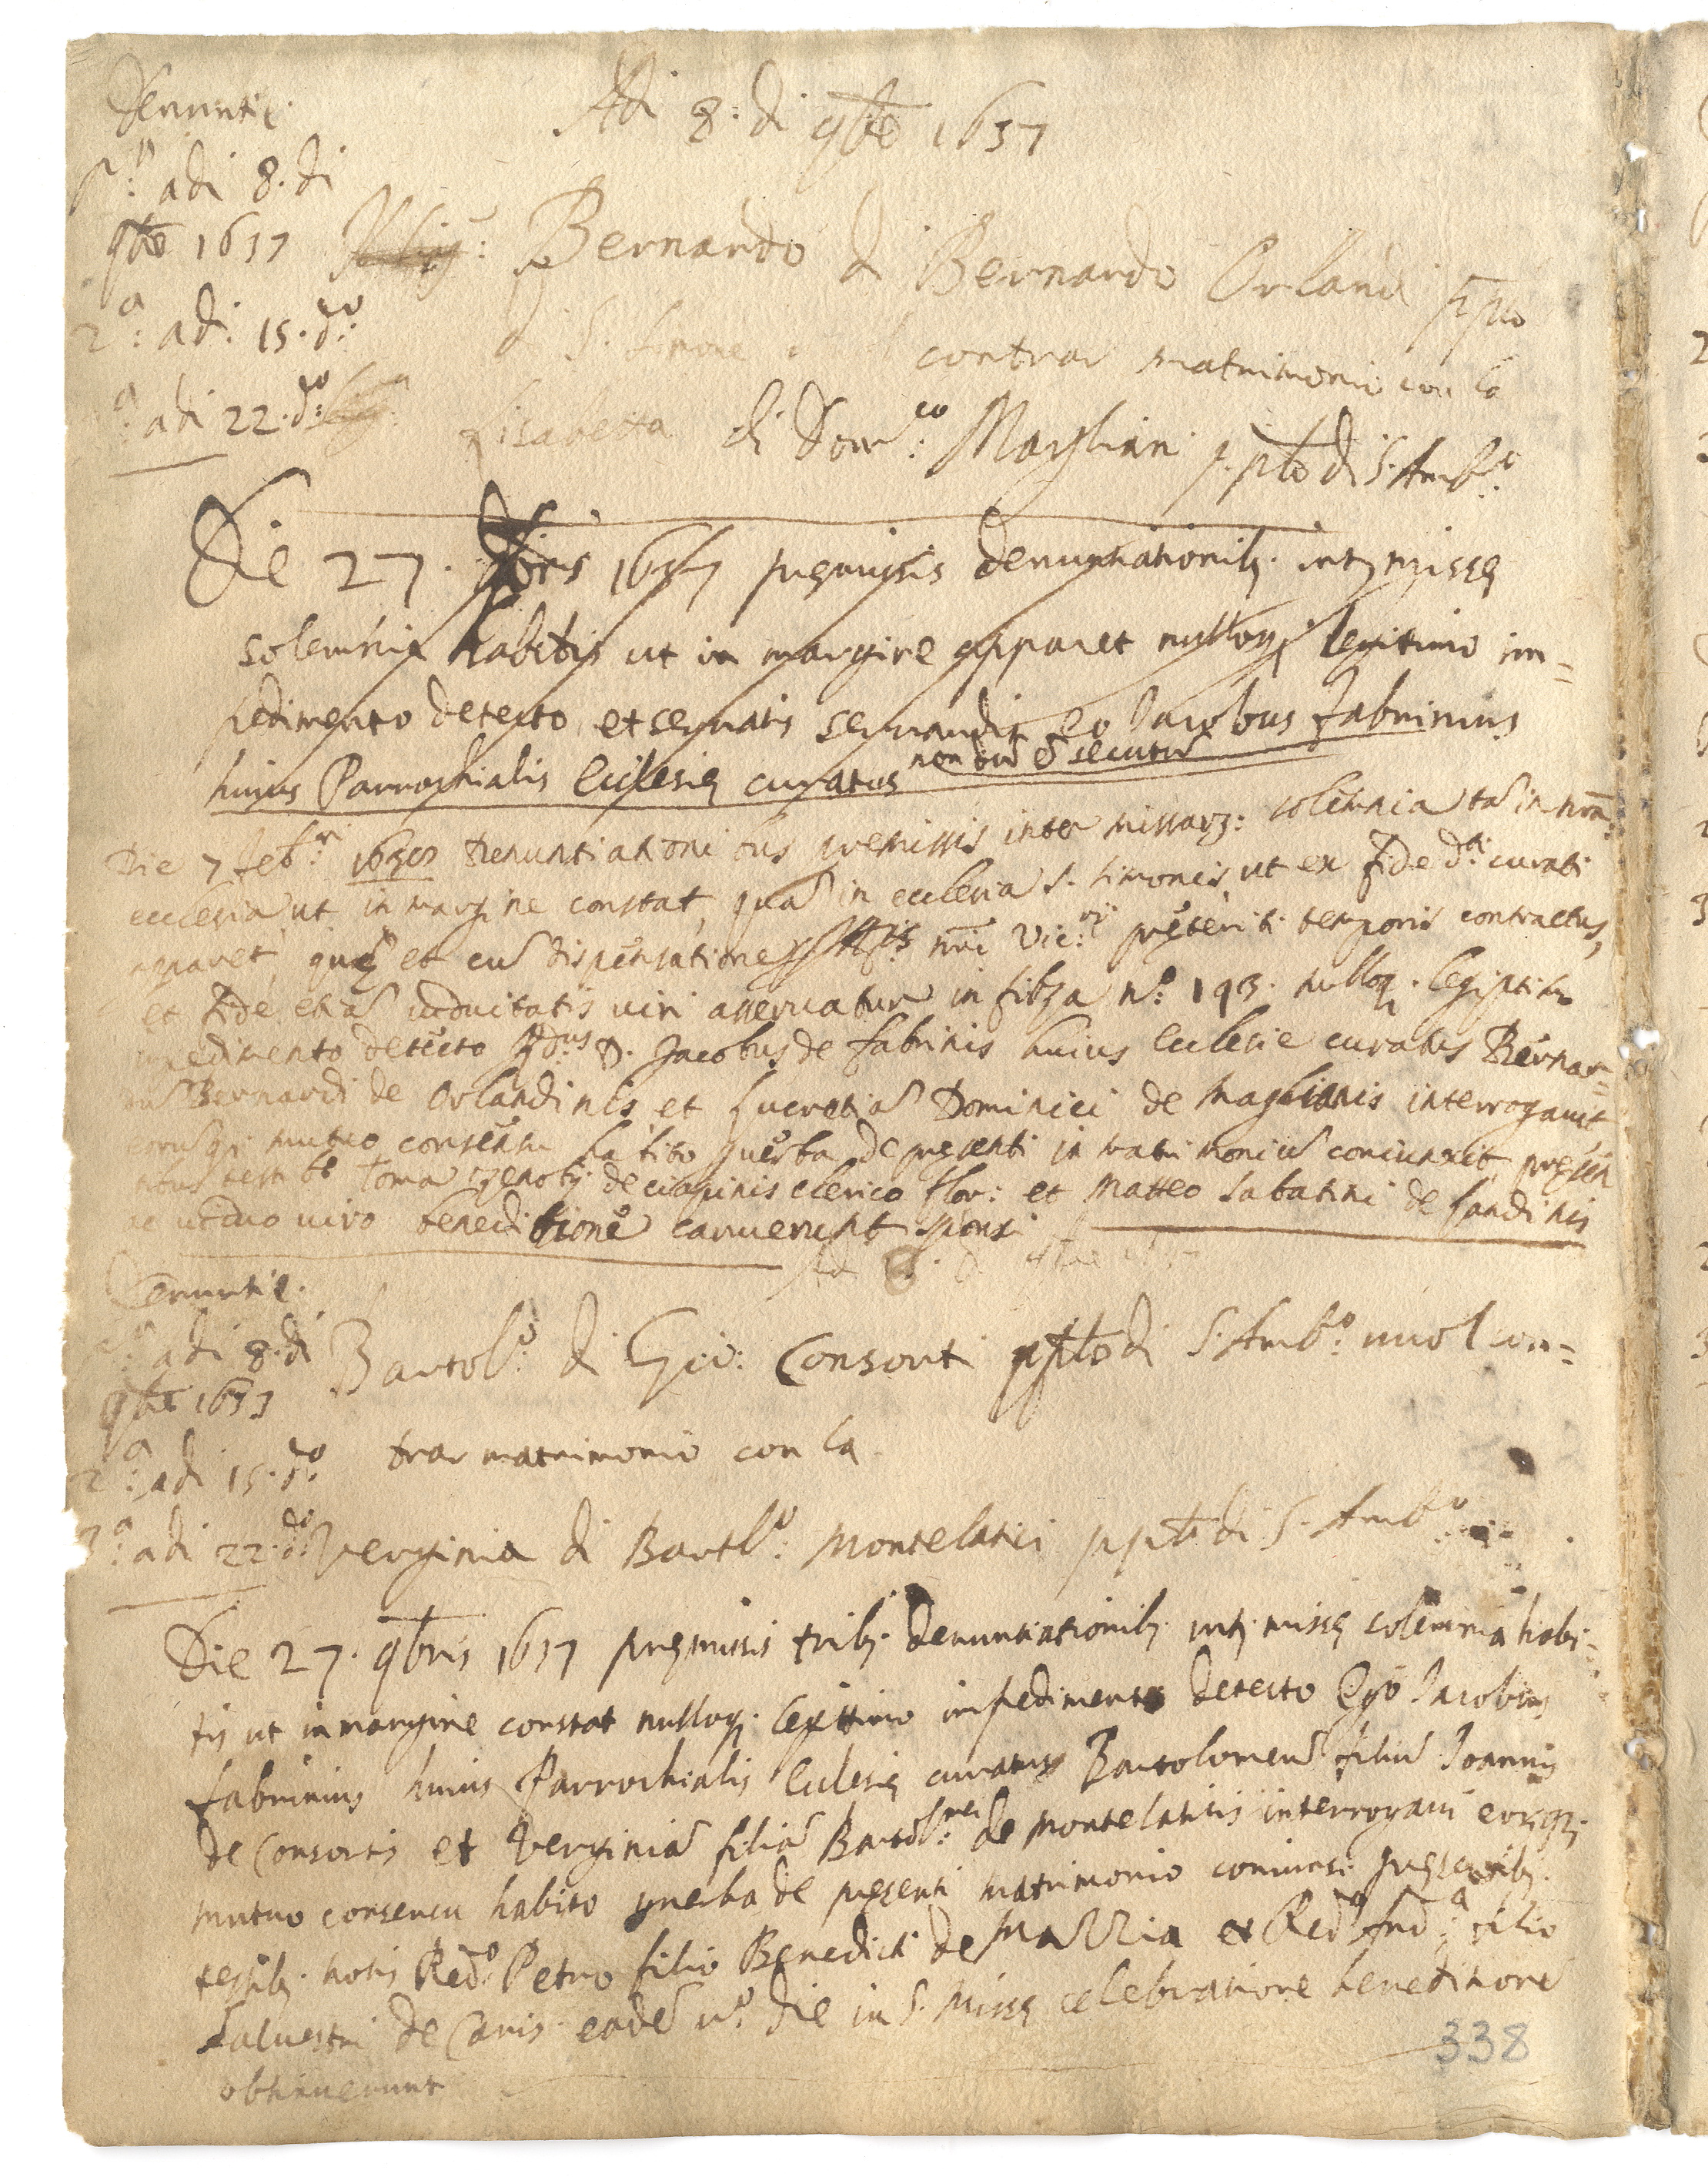 Denuntie.
p.a adi 8. di
9bre 1637
2.a: adi 15. do:
a: adi 22. do:
Adi 8: di 9bre 1637
Bernardo di Bernardo Orlandi ppto
di S. Simone contrar matrimonio con la
Lisabetta di Dom.co Magliani p.pto di S. Amb.o
Die 27. 9bris 1637 premissis denuntiationib. int. misse
solemnia habitis ut in margine apparet nulloq. legitimo im=
pedimento detecto et servatis servandis eo Jacobus Fabrinius
huius Parrochialis Eclesie curatus non bu e secutu
Die 7 feb.ri 1637 Denuntiationibus premissis inter missarz: solemnia ta in nra
ecclesia ut in margine constat, qua in ecclesia S. Simonis, ut ex fide d.i curati
apparet, que et cu dispensatione nri Vic.rij preteriti temporis contractus,
et fide etia viduitatis viri asseruatur in filza n.o 193. nulloq. legiptimo
impedimento detecto D. Jacobus de fabrinis huius Eclesie curatus Bernar=
du Bernardi de Orlandinis et Lucretia Dominici de Maglianis interrogavit,
eorusq. mutuo consensu habito p verba de presenti in matrimoniu coniunxit presen
notis testibs Toma Zenobij de ciapinis clerico flor: et Matteo Sabatini de Landinis
ac viduo viro benedictione caruerunt sponsi
Denuntie.
p.a: adi 8. di
9bre 1637
2.a: adi 15. do:
3.a: adi 22. do:
Bartol.o: di Gio: Consorti ppto di S. Amb.o: vuol con=
trar matrimonio con la
Verginia di Bartl.o: Montelatici p pto di S. Amb.o:
Die 27. 9bris 1637 premissis trib. denuntiationib. int. misse solemnia habi=
tis ut in margine constat nulloq. legittimo impedimento detecto Ego Jacobus
Fabrinius huius Parrochialis Eclesie curatus Bartolomeu filiu Joannis
de Consortis et Verginia filia Bartol.mei de Montelaticis interrogavi eorusq.
mutuo consensu habito p verba de presenti matrimonio coniunxi presentib.
testib. notis Red.o Petro filio Benedicti de Mazzia et Red.o And.a filio
Salvestri de Canis. eade v.o die in S. Misse celebratione beneditione
obtinuerunt
338